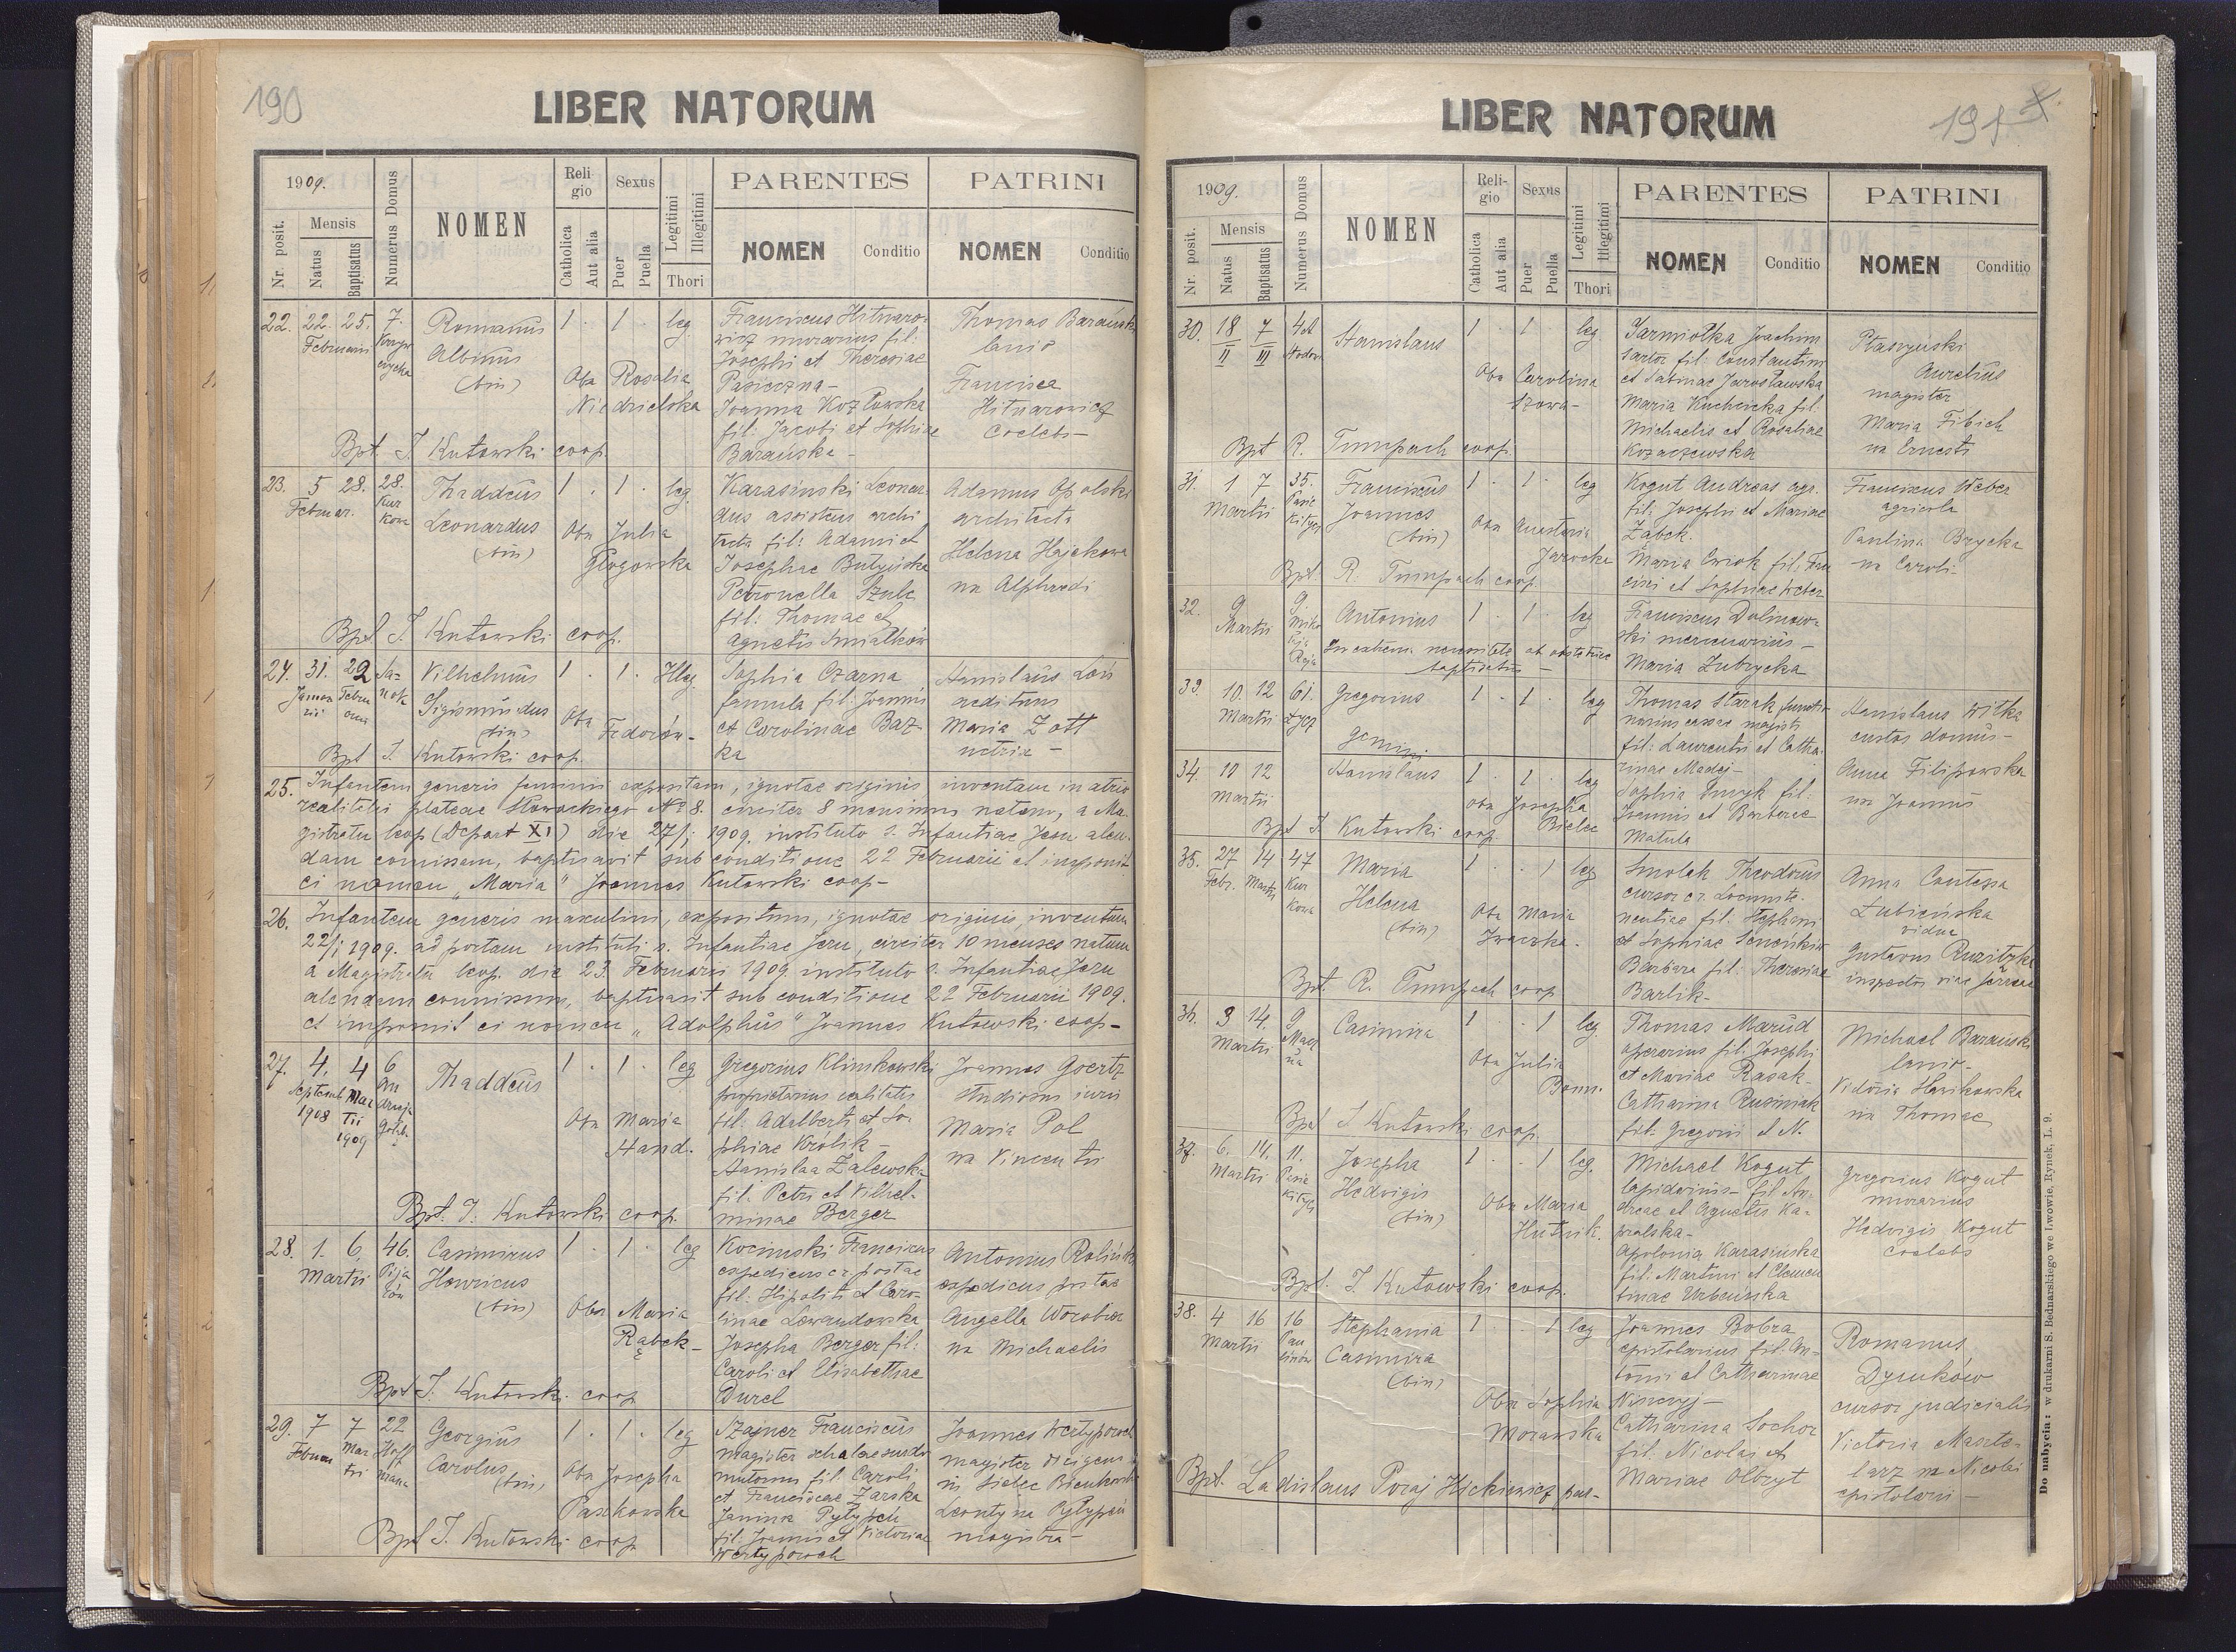 190
LIBER NATORUM
1909.
Nr. posit.
Mensis
Natus
Baptisatus
Numerus Domus
NOMEN
Religio
Catholica
Aut alia
Sexus
Puer
Puella
Legitimi
Illegitimi
Thori
PARENTES
NOMEN Conditio
PATRINI
NOMEN Conditio
22. 22. 25. 7.
Februarii
Romanus
Albinus
(bin)
1 · 1 · leg
Obs Rosalia
Niedzielska
Franciscus Hitnaro-
wicz murarius fil:
Josephi et Theresiae
Pasieczna -
Joanna Kozłowska
fil: Jacobi et Sophiae
Barańska -
Thomas Barański
lanio
Francisca
Hitnarowicz
Coelebs -
Bpt. J. Kutowski coop.
23. 5 28. 28.
Februar.
Kur
kowa
Thaddeus
Leonardus
(bin)
1 . 1 . leg.
Obs Julia
Głogowska
Karasiński Leonar-
dus assistens archi
tecta fil: Adami et
Josephae
Petronella Szulc
fil: Thomae et
Agnetis
Adamus Opolski
architecta
Helena Hajekowa
na Alphredi
Bpt J. Kutowski coop.
24. 31. 22
Januarii
Sa-
nok
Vilhelmus
Sigismundus
(bin)
1 . 1 . Illeg.
Obs
Fedorów-
Sophia Czarna
famula fil: Joannis
et Carolinae Baz-
ka
Stanislaus Loń
aeditum
Maria Zott
Bpt J. Kutowski coop.
25. Infantem generis feminini expositam, ignotae originis, inventam in atrio
realitatis plateae Słowackiego No 8. circiter 8 mensium natam, a Ma-
gistratu leop (Depart XI) die 27/i 1909. instituto s. Infantiae Jesu alen-
dam comissam, baptisavit sub conditione 22 Februarii et imposuit
ei nomen „Maria" Joannes Kutowski coop -
26. Infantem generis masculini, expositum, ignotae originis, inventum
22/i 1909. ad portam instituti s. Infantiae Jesu, circiter 10 menses natum
a Magistratu leop. die 23. Februarii 1909. instituto s. Infantiae Jesu
alendum commissum, baptisavit sub conditione 22 Februarii 1909.
et imposuit ei nomen „Adolphus" Joannes Kutowski coop -
27. 4. 4 6
Septemb Mar
1908 tii
1909
Thaddeus
1 . 1 . leg
Obs Maria
Hand.
Gregorius Klimkowski
proprietarius realitatis
fil: Adalberti et So-
phiae Królik -
Stanislaa Zalewska
fil: Petri et Vilhel-
minae Berger
Joannes Goertz
studiosus iuris
Maria Pol
na Vincentii
Bpt. J. Kutowski coop.
28. 1. 6. 46.
Martii Pija
rów
Casimirus
Henricus
(bin)
1 . 1 . leg
Obs Maria
Rąbek -
Kociuński Franciscus
expediens cr postae
fil: Hipoliti et Caro-
linae Lewandowska
Josepha Berger fil:
Caroli et Elisabethae
Durel
Antonius Roliński
expediens postae
Angella
na Michaelis
Bpt J. Kutowski coop
29. 7 7 22
Februar Mar
tii
Hoff
mana
Georgius
Carolus
(bin)
1 . 1 . leg
Obs Josepha
Paszkowska
Szajner Franciscus
magister scholae surdo
mutorum fil: Caroli
et Franciscae Żarska
Janina Pytypeń
fil: Joannis et Victoriae
Wertyporoch
Joannes Wertyporoch
magister
in Sielec Bieńkowski
Leontyna Pytypeń
magistra -
Bpt J. Kutowski coop
191
LIBER NATORUM
1909.
Nr. posit.
Mensis
Natus
Baptisatus
Numerus Domus
NOMEN
Religio
Catholica
Aut alia
Sexus
Puer
Puella
Legitimi
Illegitimi
Thori
PARENTES
NOMEN Conditio
PATRINI
NOMEN Conditio
30. 18 7 4A
II III
Stanislaus
1 . 1 leg
Obs Carolina
Szowa -
Jarmiołka Joachim
sartor fil: Constantini
et Sabinae Jarosławska
Maria Kucheicka fil:
Michaelis et Rosaliae
Kozaczewska
Ptaszyński
Aurelius
magister
Maria Fibich
na Ernesti
Bpt R. Tumpach coop.
31. 1 7 35.
Martii
Franciscus
Joannes
(bin)
1 . 1 . leg
Obs Anastasia
Jarocka
Kogut Andreas agr.
fil: Josephi et Mariae
Żabek.
Maria Cwiok fil: Fran
cisci et Sophiae Weber
Franciscus Weber
agricola
Paulina Brycka
na Caroli -
Bpt. R. Tumpach coop.
32. 9 9
Martii
Antonius
1 . 1 . leg
In extrema necessitate ab obstetrice
baptisatus -
Franciscus Dulinow-
ski mercenarius -
Maria Zubrycka
33. 10. 12 61.
Martii
Gregorius
gemini
1 . 1 . leg
Thomas Starak functio
narius cassae magist.
fil: Laurentii et Catha-
rinae Madej -
Sophia Smyk fil:
Joannis et Barbarae
Matula
Stanislaus Witka
custos domus -
Anna Filipowska
na Joannis
34. 10 12
Martii
Stanislaus
1 . 1 . leg
Obs Josepha
Bielec
Bpt J. Kutowski coop.
35. 27 14 47
Febr. Martii Kur
kowa
Maria
Helena
(bin)
1 . . 1 leg
Obs Maria
Smolak Theodorus
cursor cr. Locumte-
nentiae fil. Stephani
et Sophiae
Barbara fil: Theresiae
Barlik -
Anna Contessa
Łubieńska
vidua
Gustavus Ruzitzka
inspector viae ferreae
Bpt. R. Tumpach coop
36. 3 14. 9
Martii
Casimira
1 . . 1 leg.
Obs Julia
Bonn.
Thomas Marud
operarius fil: Josephi
et Mariae Rasak -
Catharina Rusiniak
fil: Gregorii et N.
Michael Barański
lanio -
Victoria Hawikowska
na Thomae
Bpt J Kutowski coop.
37. 6. 14. 11.
Martii
Josepha
Hedvigis
(bin)
1 . . 1 leg.
Obs Maria
Hutnik.
Michael Kogut
lapidarius - fil An-
dreae et Agnetis Ka-
pralska -
Apolonia Karasińska
fil: Martini et Clemen
tinae Urbańska
Gregorius Kogut
murarius
Hedvigis Kogut
coelebs
Bpt. J. Kutowski coop.
38. 4 16 16
Martii
Pau
linów
Stephania
Casimira
(bin)
1 . . 1 leg
Obs Sophia
Morawska
Joannes Bobra
epistolarius fil: An-
tonii et Catharinae
Catharina Sochor
fil: Nicolai et
Mariae Olbryt
Romanus
Dymków
cursor judicialis
Victoria Maszte-
larz na Nicolai
epistolarii -
Bpt. Ladislaus Poraj Hickiewicz
Do nabycia: w drukarni S. Bednarskiego we Lwowie, Rynek, L. 9.